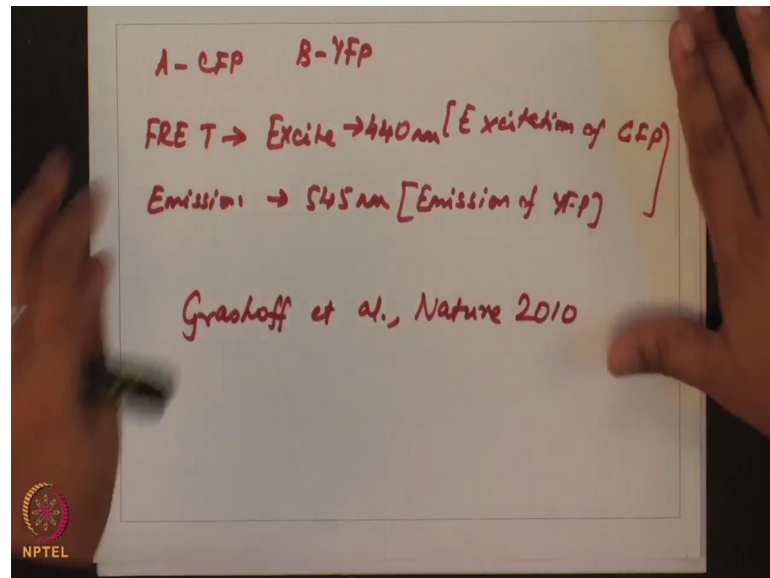 A-CFP B-YFP
FRET → Excite → 440nm [Excitation of CFP]
Emission → 545nm [Emission of YFP]
Grashoff et al., Nature 2010
NPTEL